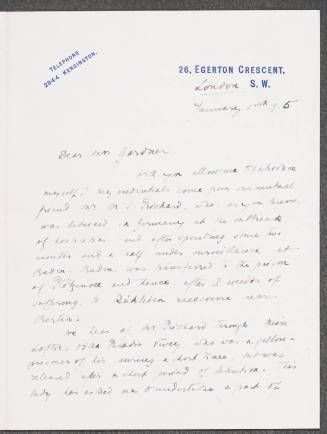 TELEPHONE
2844 KENSINGTON.
26, EGERTON CRESCENT,
London S. W.
January
Dear Mrs Gardner
Will you allow me to introduce
myself? My credentials come from our mutual
friend Mr Prichard, who, as you know
was detained in Germany at the outbreak
of hostilities and after spending some two
months and a half under surveillance at
Baden Baden, was transferred to the prison
of and thence after 3 weeks of
suffering, to racecourse near
Berlin.
We hear of Mr Prichard through Miss
Loftie, who was a fellow-
prisoner of his during a short time, but was
released after a short period of detention. This
lady has asked me to undertake a part of